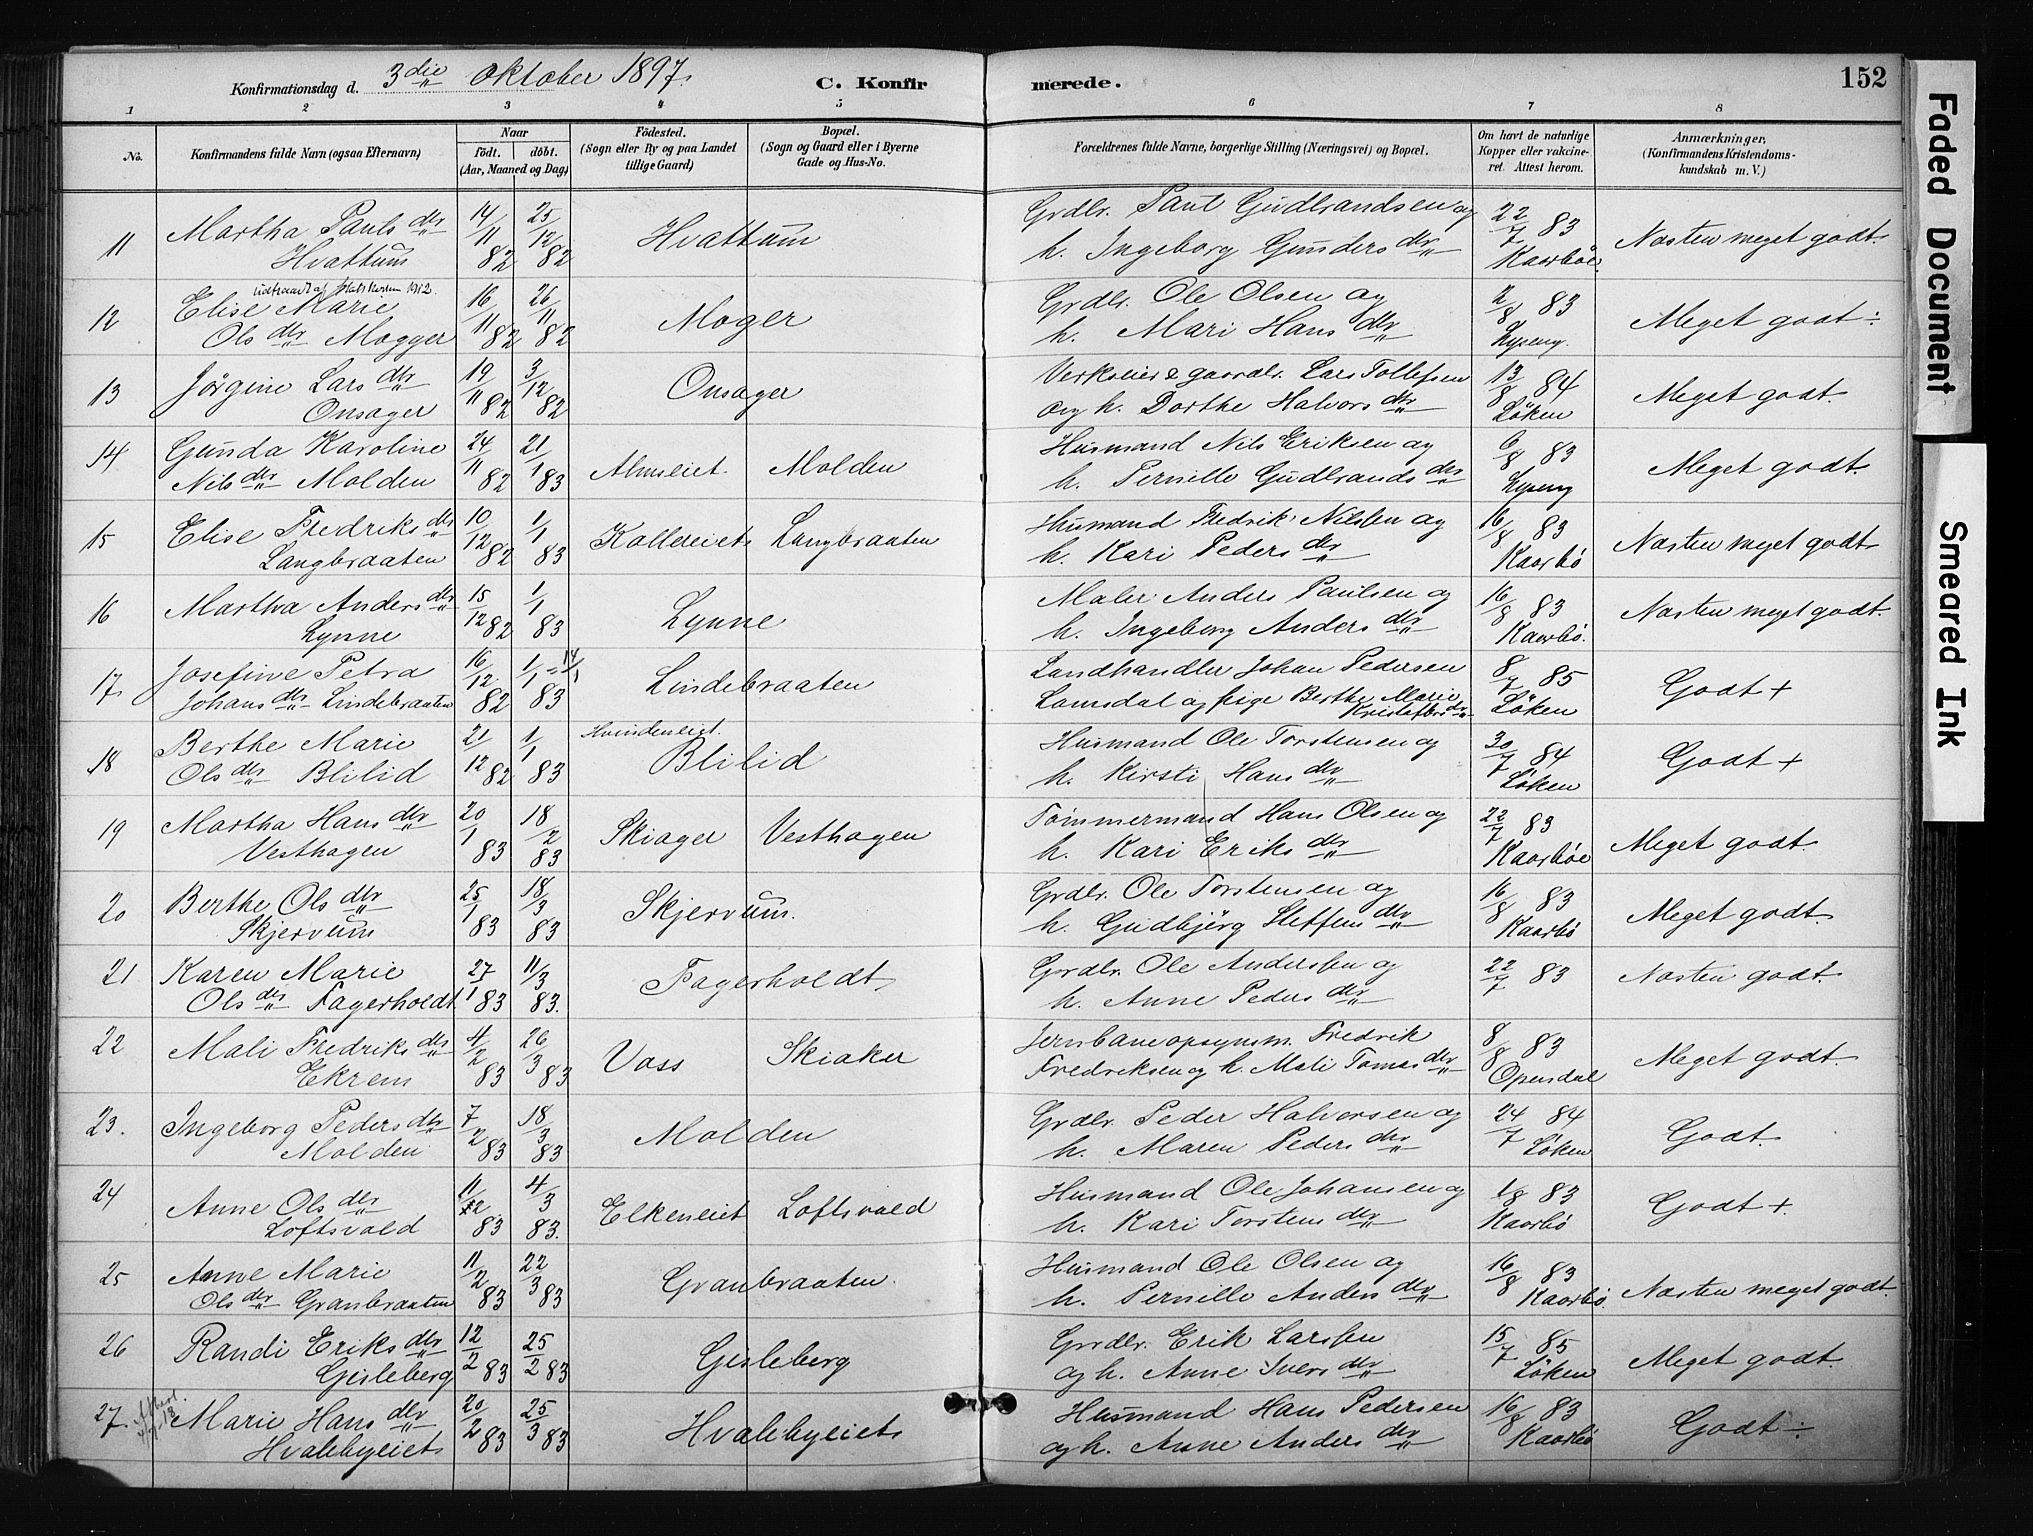 Konfirmationsdag d. 3die Oktober 1897.
C. Konfirmerede.
152
1 2 3 4 5 6 7 8
No.
Konfirmandens fulde Navn (ogsaa Efternavn)
Naar
födt. döbt.
(Aar, Maaned og Dag)
Födested.
(Sogn eller By og paa Landet
tillige Gaard)
Bopæl.
(Sogn og Gaard eller i Byerne
Gade og Hus-No.
Forældrenes fulde Navne, borgerlige Stilling (Næringsvei) og Bopæl.
Om havt de naturlige
Kopper eller vakcine-
ret. Attest herom.
Anmærkninger,
(Konfirmandens Kristendoms-
kundskab m. V.)
11 Martha Pauls dtr 14/11 82 25/12 82 Hvattum Grdbr. Paul Gudbrandsen og 22/7 83 Næsten meget godt.
Hvattum h. Ingeborg Gunders dtr Kaarböe.
udtraadt af Statskirken 1912.
12 Elise Marie 16/11 82 26/11 82 Moger Grdbr. Ole Olsen og 2/8 83 Meget godt ÷
Ols dtr Mogger h. Mari Hans dtr Lyseng.
13 Jörgine Lars dtr 19/11 82 3/12 82 Onsager Verkseier & gaardbr. Lars Tollefsen 13/8 84 Meget godt.
Onsager og h. Dorthe Halvors dtr Löken
14 Gunda Karoline 24/11 82 21/1 83 Almseiet. Molden Husmand Nils Eriksen og 6/8 83 Meget godt.
Nils dtr Molden h. Pernille Gudbrands dtr Lyseng
15 Elise Fredriks dtr 10/12 82 1/1 83 Kollereiet Langbraaten Husmand Fredrik Nilsen og 16/8 83 Næsten meget godt
Langbraaten h. Kari Peders dtr Kaarbö
16 Martha Anders dtr 15/12 82 1/1 83 Lynne Maler Anders Paulsen og 16/8 83 Næsten meget godt.
Lynne h. Ingeborg Anders dtr Kaarbö.
17. Josefine Petra 16/12 82 1/1 = 14/1 83 Lindebraaten Landhandler Johan Pedersen 8/7 85 Godt +
Johans dtr Lindebraaten Lomsdal og pige Berthe Marie Kristoffers dtr Löken
18 Berthe Marie 21/12 82 1/1 83 Hvindeneiet. Blilid Husmand Ole Torstensen og 30/7 84 Godt +
Ols dtr Blilid h. Kirsti Hans dtr Löken
19 Martha Hans dtr 20/1 83 18/2 83 Skiager Vesthagen Tömmermand Hans Olsen og 22/7 83 Meget godt.
Vesthagen h. Kari Eriks dtr Kaarböe
20 Berthe Ols dtr 25/1 83 18/3 83 Skjervum. Grdbr. Ole Torstensen og 16/8 83 Meget godt.
Skjervum h. Gudbjörg Steffens dtr Kaarbö
21 Karen Marie 27/1 83 11/3 83. Fagerholdt Grdbr. Ole Andersen og 22/7 83 Næsten godt.
Ols dtr Fagerholdt h. Anne Peders dtr
22 Mali Fredriks dtr 4/2 83 26/3 83 Voss Skiaker Jernbaneopsynsm. Fredrik 8/8 83 Meget godt.
Ekrem Fredriksen og h. Mali Tomas dtr Opendal
23. Ingeborg Peders dtr 7/2 83 18/3 83 Molden Grdbr. Peder Halvorsen og 24/7 84 Godt.
Molden h. Maren Peders dtr Löken
24 Anne Ols dtr 11/2 83 4/3 83. Elkeneiet Loftsvold Husmand Ole Johansen og 1/8 83 Godt +
Loftsvold h. Kari Torstens dtr Kaarbö
25 Anne Marie 11/2 83 22/3 83 Granbraaten. Husmand Ole Olsen og 16/8 83 Næsten meget godt.
Ols dtr Granbraaten h. Pernille Anders dtr Kaarbö.
26 Randi Eriks dtr 12/2 83 25/2 83 Gisleberg Grdbr. Erik Larsen 15/7 85 Meget godt.
Gisleberg og h. Anne Ivers dtr Löken
27. Marie Hans dtr 20/2 83 25/3 83 Hvalebyeiet Husmand Hans Pedersen 16/8 83 Godt ÷
Hvalebyeiet og h. Anne Anders dtr Kaarbö
Faded Document
Smeared Ink